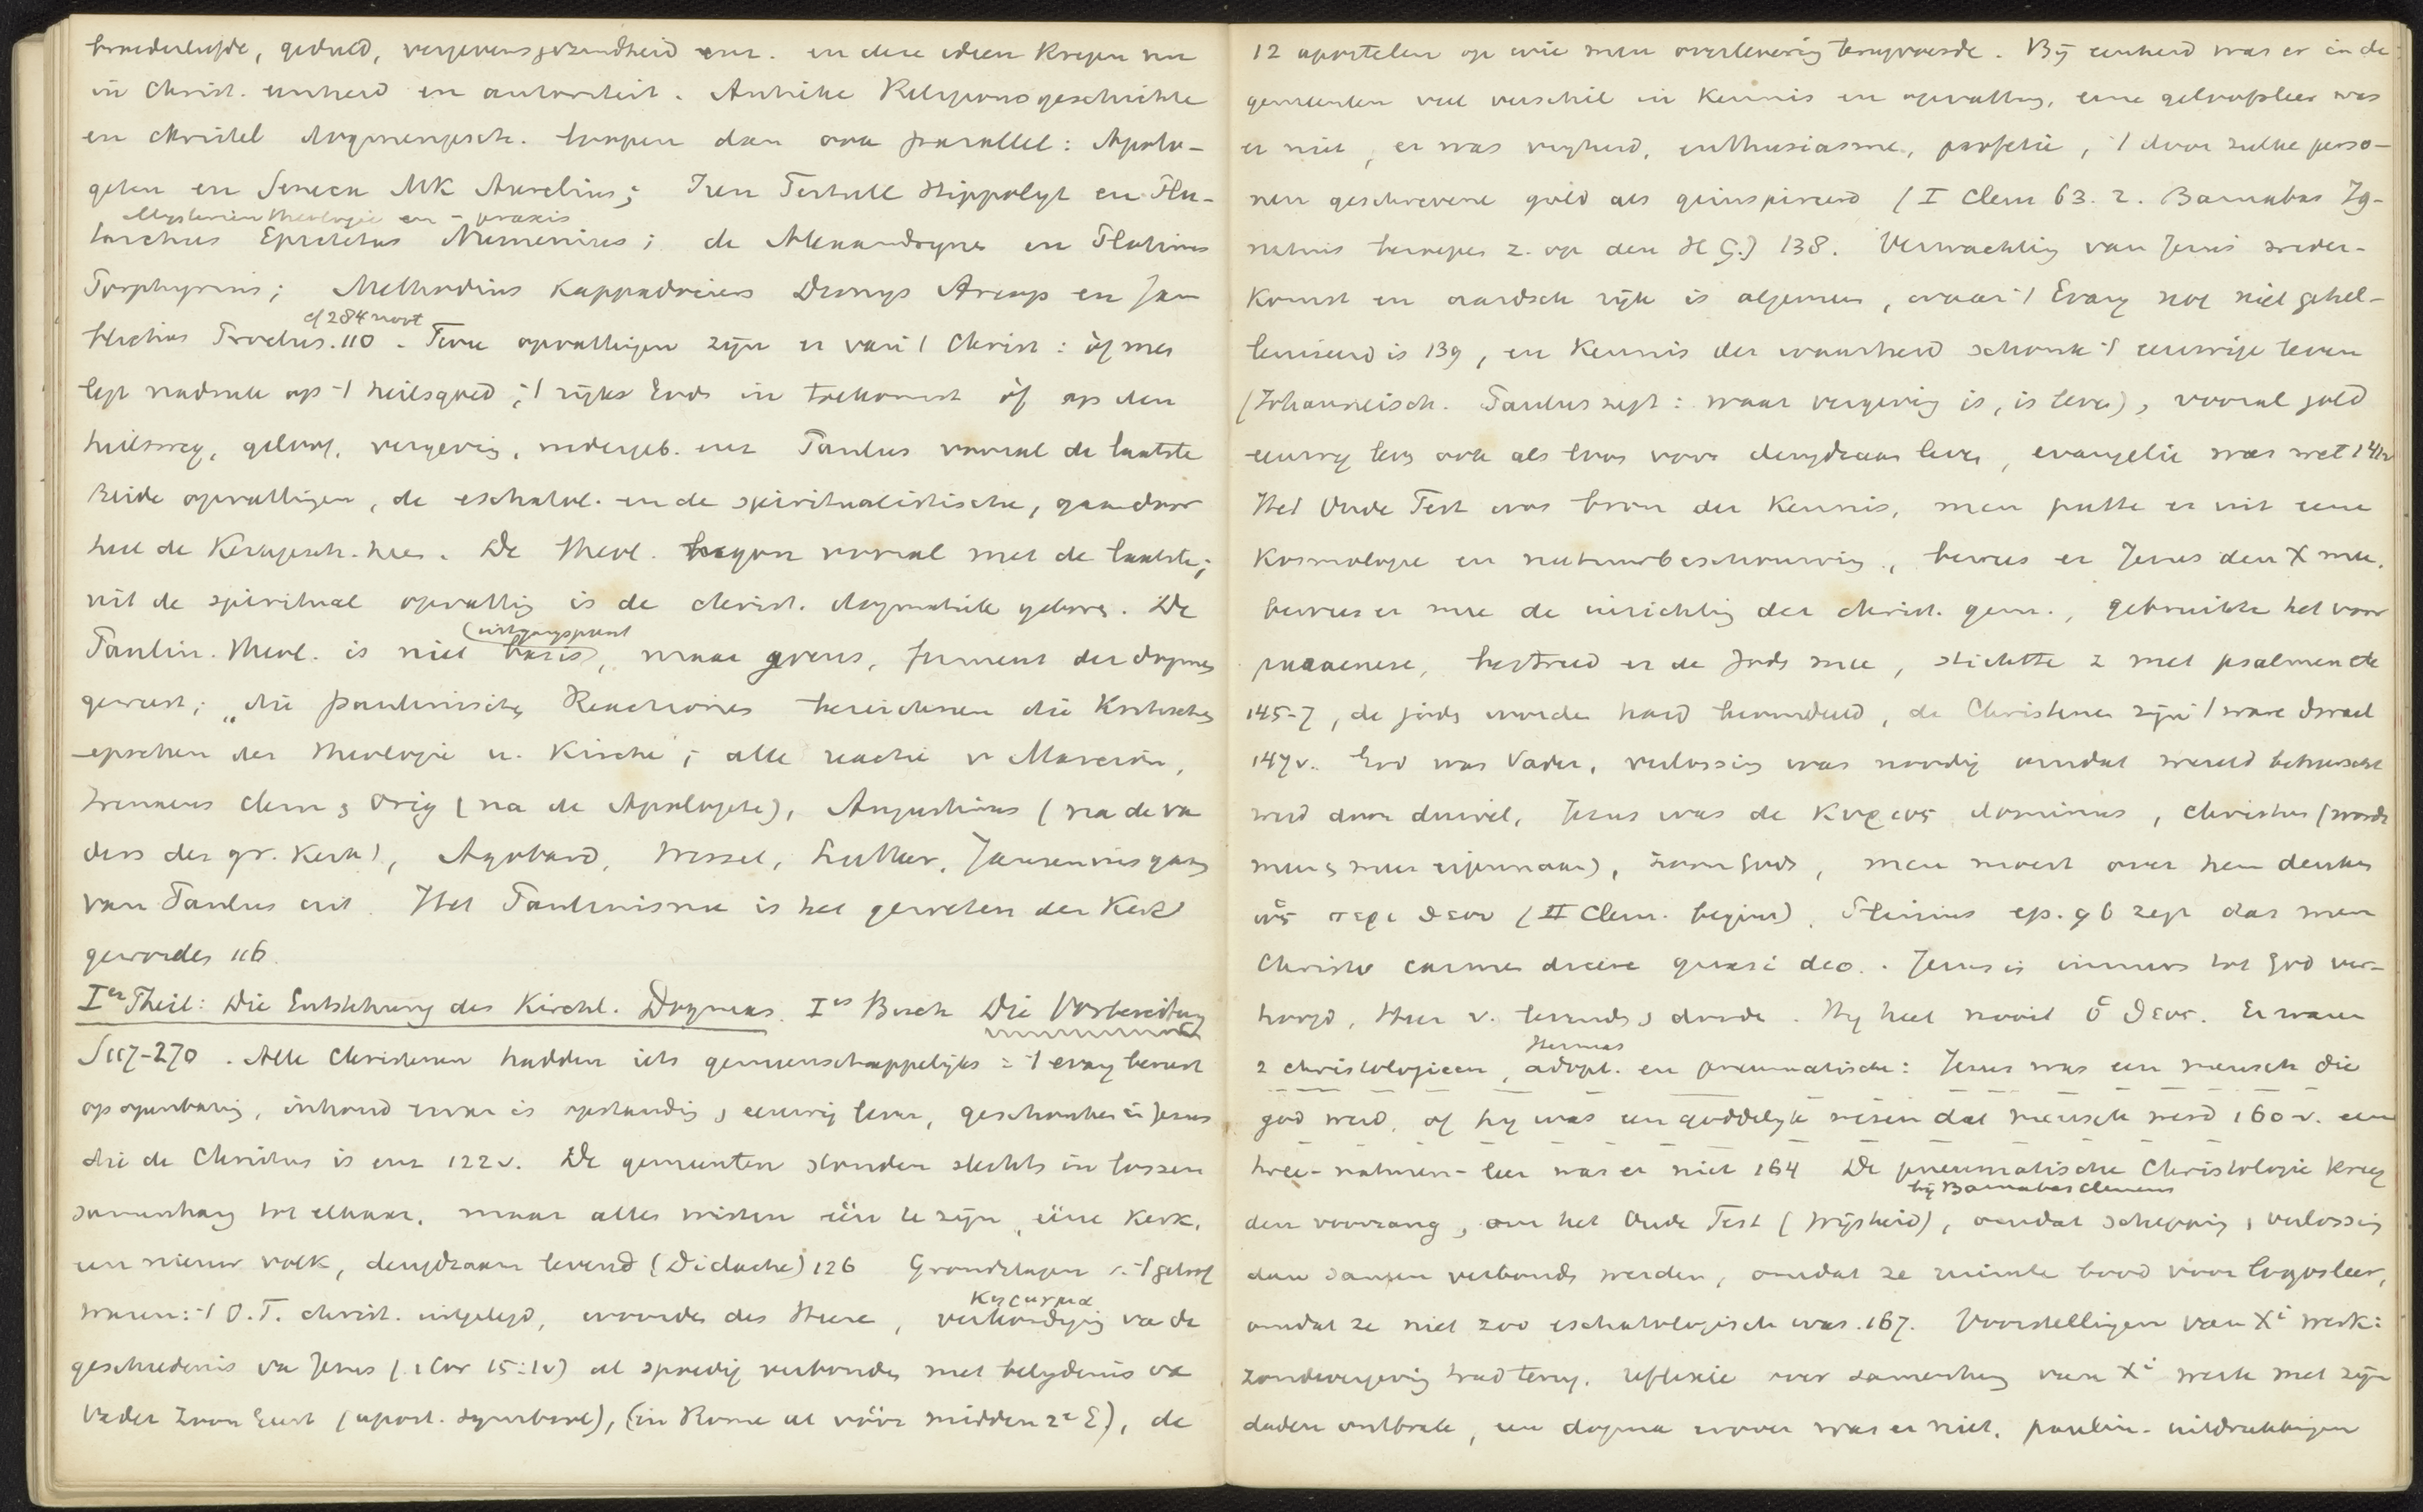 broederliefde, geduld, vergevensgezindheid enz. en deze ideen kregen nu
in Christ. eenheid en autoriteit. Antike Religionsgeschichte
en christel dogmengesch. loopen dan ook parallel: Apolo-
geten en Seneca MK Aurelius; Iren Tertull Hippolyt en Plu-
Mysterientheologie en -praxis
tarchus Epictetus Numenius; de Alexandrijnen en Plotinus
Porphyrius; Methodius Kappadociers Dionys Areop en Jam
cf 284 noot
blichus Proclus. 110. Twee opvattingen zijn er van 't Christ: òf men
legt nadruk op 't heilsgoed, 't rijk Gods in toekomst òf op den
heilsweg, geloof, vergeving, wedergeb. enz Paulus vooral de laatste
Beide opvattingen, de eschatol. en de spiritualistische, gaan door
heel de Kerkgesch. heen. De theol. begon vooral met de laatste;
uit de spiritual opvatting is de christ. dogmatiek geboren. De
(uitgangspunt
Paulin. theol. is niet basis), maar grens, ferment der dogmen
geweest; „die paulinischen Reactionen bezeichnen die kritischen
epochen der Theologie u. Kirche; alle reactie v Marcion,
Irenaeus Clem & Orig (na de Apologete), Augustinus (na de va
ders der gr. Kerk), Agobard, Wessel, Luther, Jansenius gaan
van Paulus uit. Het Paulinisme is het geweten der Kerk
geworden 116.
Ier Theil: Die Entstehung des Kirchl. Dogmas. Ies Buch Die Vorbereitung
S 117-270. Alle Christenen hadden iets gemeenschappelijks = 't evang berust
op openbaring, inhoud ervan is opstanding & eeuwig leven, geschonken in Jezus
die de Christus is enz 122v. De gemeenten stonden slechts in lossen
samenhang tot elkaar, maar alles wisten één te zijn, ééne Kerk,
een nieuw volk, deugdzaam levend (Didache) 126 Grondslagen v. 't geloof
waren: 't O.T. christ. uitgelegd, woorden des Heere,
Κηρυγμα
verkondiging va de
geschiedenis va Jezus (1 Cor 15:1v) al spoedig verbonden met belijdenis va
Vader Zoon Geest (apost. symbool), (in Rome al vóór midden 2e E), de
12 apostelen op wie men overlevering terugvoerde. Bij eenheid was er in de
gemeenten veel verschil in kennis en opvatting, eene geloofsleer was
er niet, er was vrijheid, enthusiasme, profetie, 't door zulke perso-
nen geschrevene gold als geinspireerd (I Clem 63. 2. Barnabas Ig-
natius beroepen z. op den H G.) 138. Verwachting van Jezus weder-
komst en aardsch rijk is algemeen, waar 't Evang nog niet gehel-
leniseerd is 139, en kennis der waarheid schonk 't eeuwige leven
(Johanneisch. Paulus zegt: waar vergeving is, is leven), vooral gold
eeuwig leven ook als loon voor deugdzaam leven, evangelie was wet 141v
Het Oude Test was bron der Kennis, men putte er uit eene
kosmologie en natuurbeschouwing, bewees er Jezus den X mee,
bewees er mee de inrichting der christ. gem., gebruikte het voor
paraenese, bestreed er de Jods mee, stichtte z met psalmen etc
145-7, de jods worden hard beoordeeld, de Christenen zijn 't ware Israel
147v. God was Vader, verlossing was noodig omdat wereld beheerscht
werd door duivel, Jezus was de κυριος dominus, Christus (wordt
meer & meer eigennaam), zoon Gods, men moest over hem denken
ὡς περι θεου (II Clem. begin). Plinius ep. 96 zegt dat men
Christo carmen dicere quasi deo. Jezus is immers tot God ver-
hoogd, Heer v. levende & doode. Hij heet nooit ὁ θεος. Er waren
Hermas
2 christologieen, adopt. en pneumatische: Jezus was een mensch die
god werd, of hij was een goddelijk wezen dat mensch werd 160v. een
twee-naturen-leer was er niet 164 De pneumatische Christologie kreeg
bij Barnabas Clemens
den voorrang, om het Oude Test (Wijsheid), omdat schepping & verlossing
dan samen verbonden werden, omdat ze ruimte bood voor logosleer,
omdat ze niet zoo eschatologisch was. 167. Voorstellingen van Xi werk:
zondevergeving trad terug, reflexie over samenhang van Xi werk met zijn
daden ontbrak, een dogma erover was er niet, paulin. uitdrukkingen